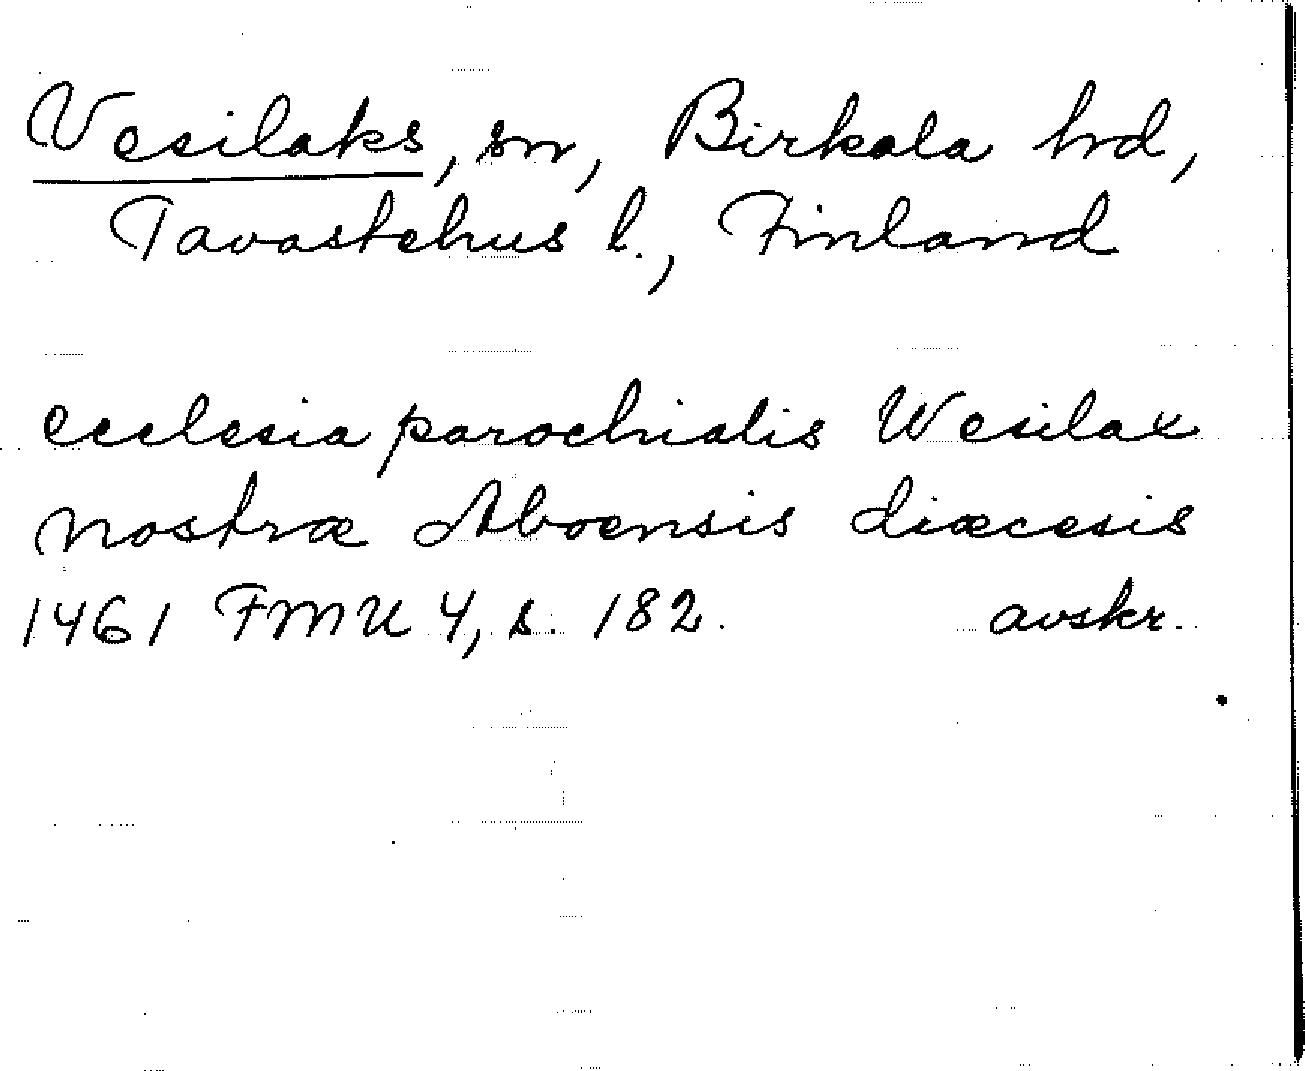 Vesilaks, sn, Birkala hd,
Tavastehus l., Finland
ecclesia parochialis Wesilax
nostræ Aboensis diæcesis
1461 FMU 4, s. 182. avskr.